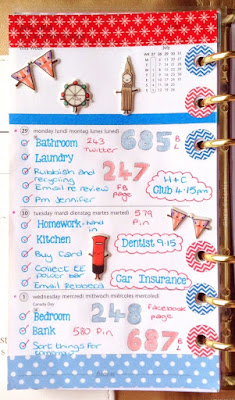 July
29 monday lundi montag lunes lunedì
Bathroom 243 685 B L
Twitter
Laundry
Rubbish and 247 H + C
recycling Club 4.15pm
Email re review FB
Pm Jennifer page
30 tuesday mardi dienstag martes martedì 579
Homework hand P.in
in
Kitchen Dentist 9.15
Buy Card
Collect EE
power bar Car Insurance
Email Rebecca
wednesday mercredi mittwoch miércoles mercoledì
Canada Day
Bedroom 248 Facebook
page
Bank 580 P.in 687 B L
Sort things for